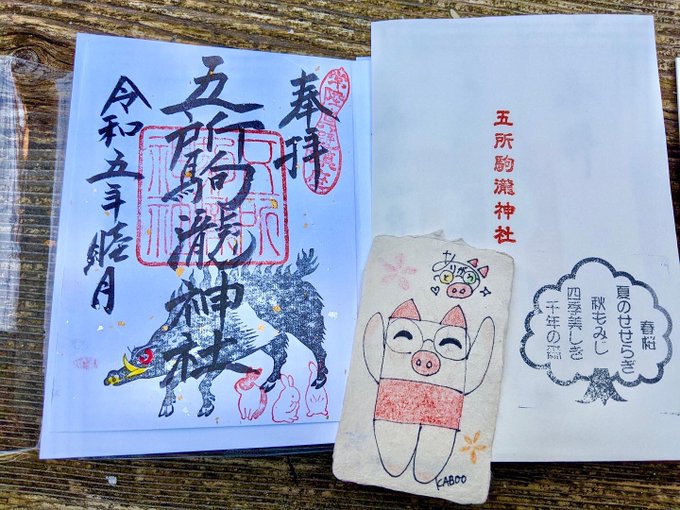 奉拝
五所駒瀧神社
令和五年睦月
五所駒瀧神社
春桜
夏のせせらぎ
秋もみじ
四季美しき
千年の森
ありがとう
KABOO